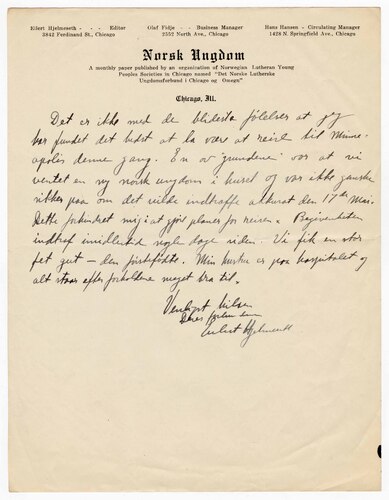 Eilert Hjelmeseth - - Editor
3842 Ferdinand St., Chicago
Olaf Fidje - - Business Manager
2552 North Ave., Chicago
Hans Hansen - Circulating Manager
1428 N. Springfield Ave., Chicago
Norsk Ungdom
A monthly paper published by an organization of Norwegian Lutheran Young
Peoples Societies in Chicago named "Det Norske Lutherske
Ungdomsforbund i Chicago og Omegn"
Chicago, Ill.
Det er ikke med de blideste følelser at jeg
har fundet det bedst at la være at reise til Minne-
apolis denne gang. En av grundene var at vi
ventet en ny norsk ungdom i huset og var ikke ganske
sikker paa om det vilde indtraffe akkurat den 17de Mai.
Dette forhindret mig i at gjøre planer for reisen. Begivenheten
indtraf imidlertid nogle dage siden. Vi fik en stor
fet gut – den førstefødte. Min hustru er paa hospitalet og
alt staar efter forholdene meget bra til.
Venligst hilsen
Deres
Eilert Hjelmeseth